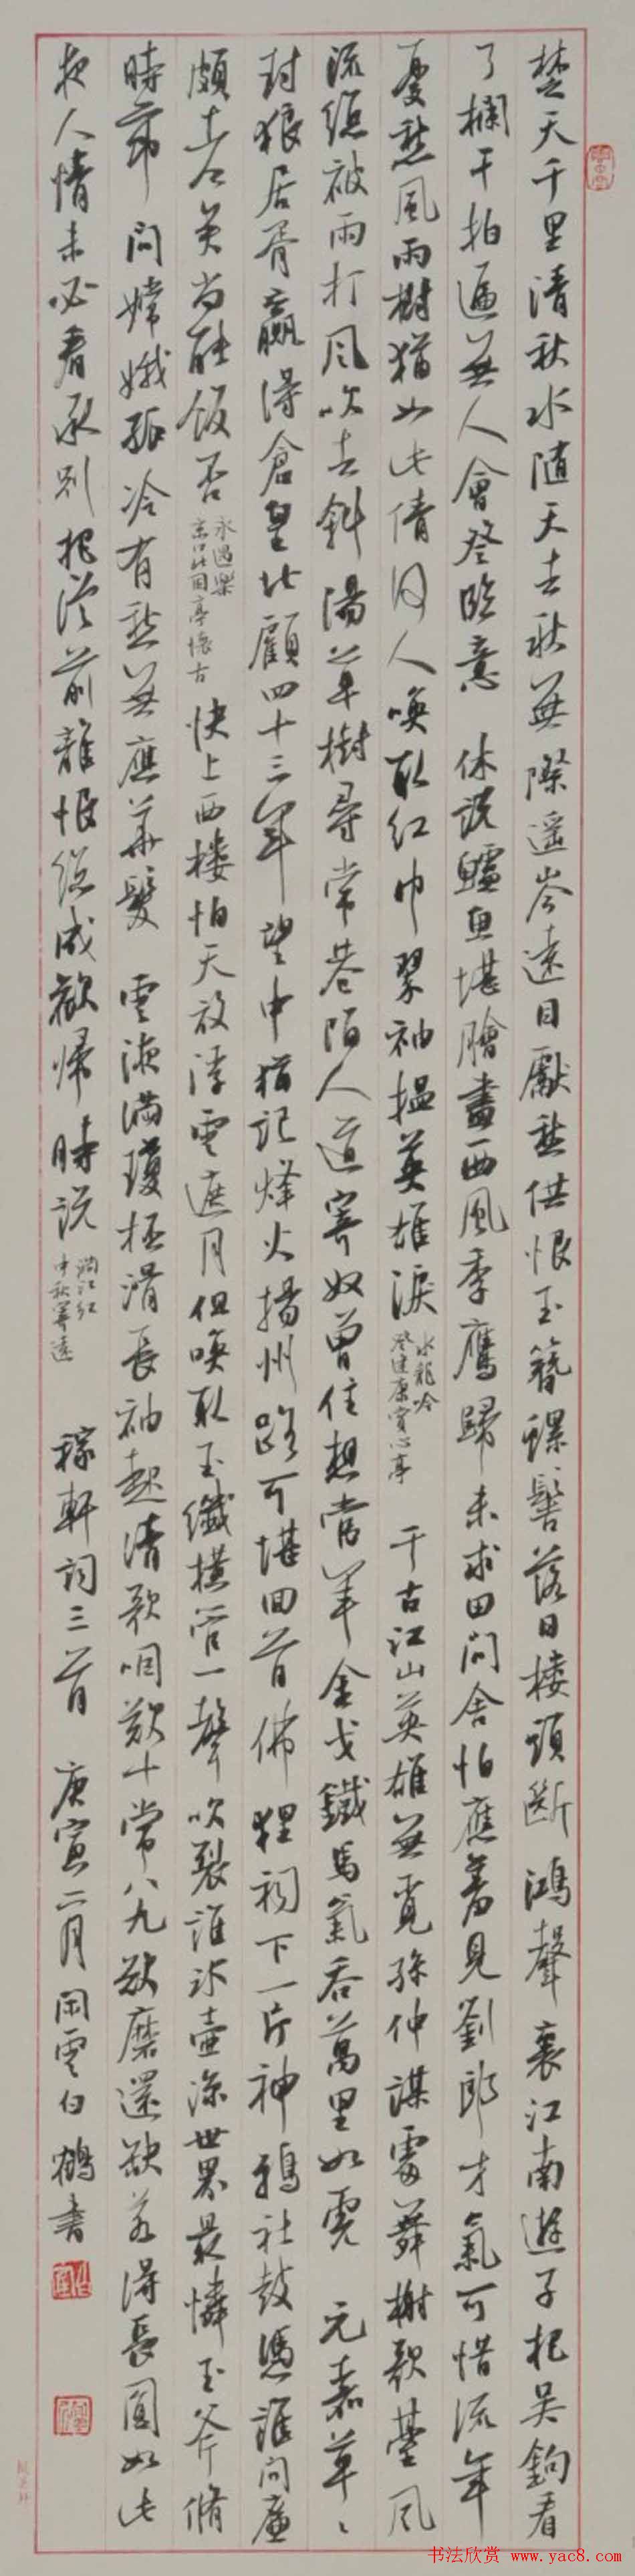 楚天千里清秋水隨天去秋無際遥岑遠目獻愁供恨玉簪螺髻落日樓頭斷鴻聲裏江南遊子把吴鉤看
了欄干拍遍無人會登臨意 休説鱸魚堪膾盡西風季鷹歸未求田問舍怕應羞見劉郎才氣可惜流年
憂愁風雨樹猶如此倩何人唤取紅巾翠袖揾英雄淚 水龍吟 登建康賞心亭 千古江山英雄無覓孫仲謀處舞榭歌臺風
流總被雨打風吹去斜陽草樹尋常巷陌人道寄奴曾住想當年金戈鐵馬氣吞萬里如虎 元嘉草〻
封狼居胥贏得倉皇北顧四十三年望中猶記烽火揚州路可堪回首佛狸祠下一片神鴉社鼓憑誰問廉
頗老矣尚能飯否 永遇樂 京口北固亭懷古 快上西樓怕天放浮雲遮月但唤取玉纖横管一聲吹裂誰冰壺涼世界最憐玉斧脩
時節 問嫦娥孤冷有愁無應華髮 雲液滿瓊杯滑長袖起清歌咽歎十常八九欲磨還缺若得長圓如此
夜人情未必看承別把從前離恨總成歡歸時説 滿江紅 中秋寄遠 稼軒詞三首 庚寅二月 閑雲白鶴書
书法欣赏 www.yac8.com